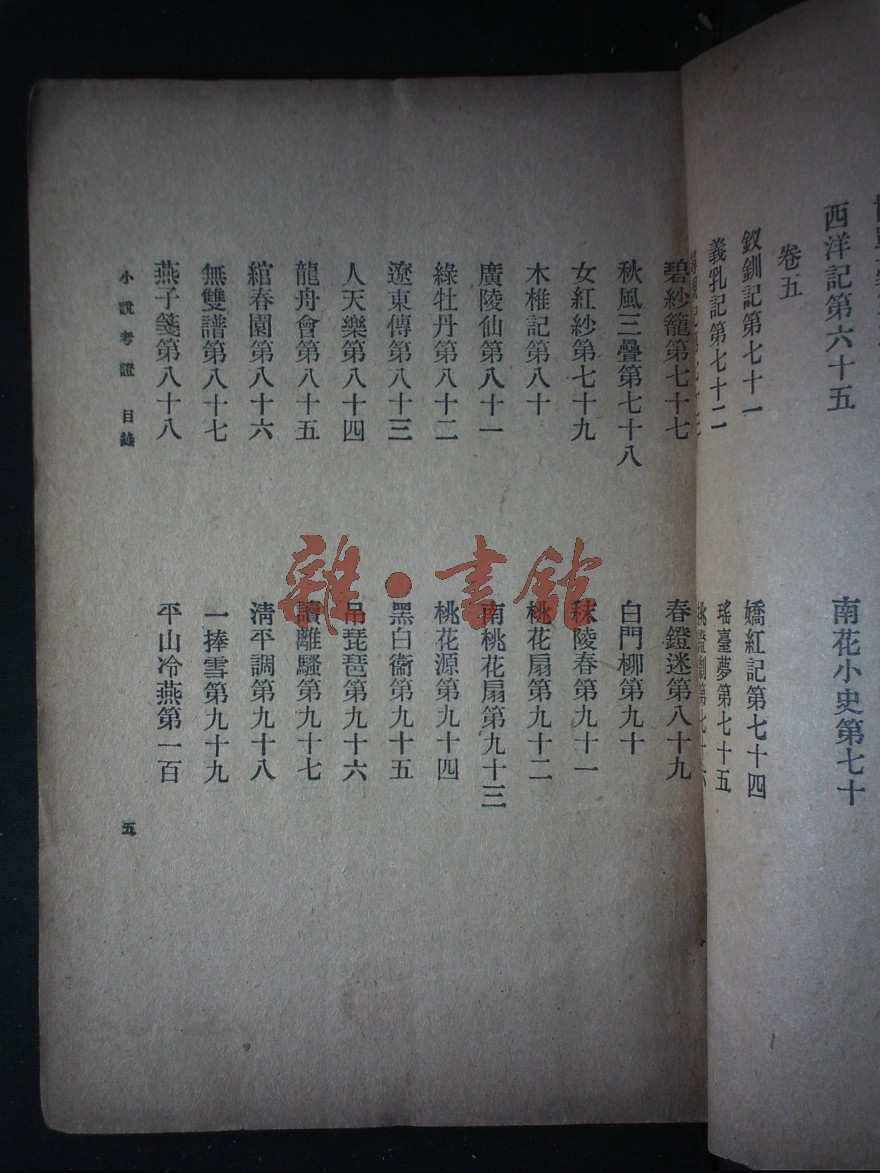 西洋記第六十五
南花小史第七十
卷五
釵釧記第七十一
嬌紅記第七十四
義乳記第七十二
瑤臺夢第七十五
碧紗籠第七十七
春鐙迷第八十九
秋風三疊第七十八
白門柳第九十
女紅紗第七十九
秣陵春第九十一
木椎記第八十
桃花扇第九十二
廣陵仙第八十一
南桃花扇第九十三
綠牡丹第八十二
桃花源第九十四
遼東傳第八十三
黑白衞第九十五
人天樂第八十四
吊琵琶第九十六
龍舟會第八十五
讀離騷第九十七
綰春園第八十六
淸平調第九十八
無雙譜第八十七
一捧雪第九十九
燕子箋第八十八
平山冷燕第一百
小說考證 目錄
五
雜·書館